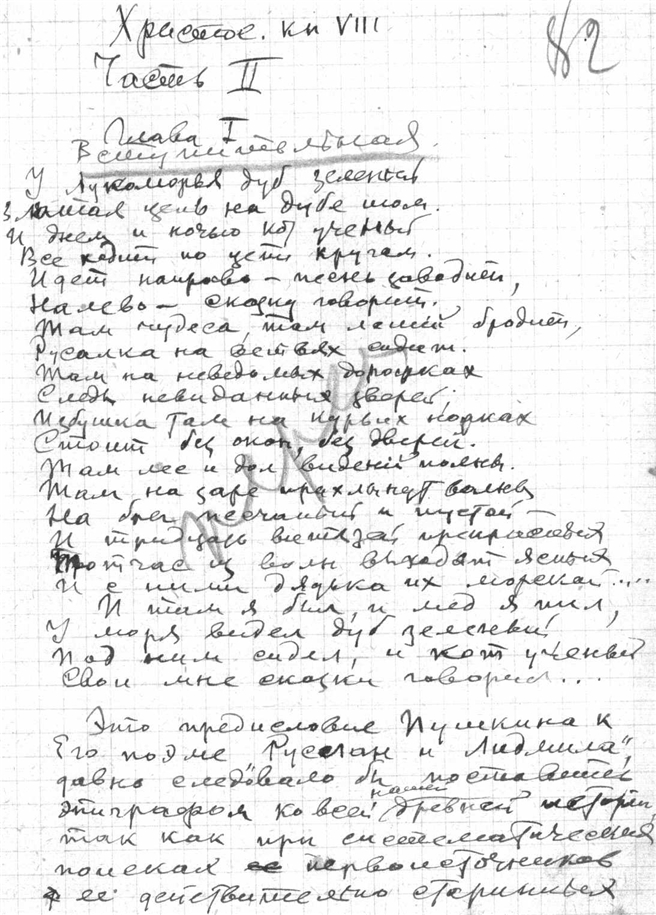 Христос. кн VIII
82
Часть II
Глава I
Вступительная.
У Лукоморья дуб зеленый
Златая цепь на дубе том.
И днем и ночью кот ученый
Все ходит по цепи кругом.
Идет направо – песнь заводит,
Налево – сказку говорит.
Там чудеса, там леший бродит,
Русалка на ветвях сидит.
Там на неведомых дорожках
Следы невиданных зверей,
Избушка там на курьих ножках
Стоит без окон, без дверей.
Там лес и дол видений полны.
Там на заре прихлынут волны
На брег песчаный и пустой
И тридцать витязей прекрасных
Тотчас из волн выходят ясных
И с ними дядька их морской.....
И там я был, и мед я пил,
У моря видел дуб зеленый
Под ним сидел, и кот ученый
Свои мне сказки говорил...
Это предисловие Пушкина к
Его поэме "Руслан и Людмила",
давно следовало бы поставить
эпиграфом ко всей нашей древней истории,
так как при систематических
поисках ее первоисточников
ее действительно старинных